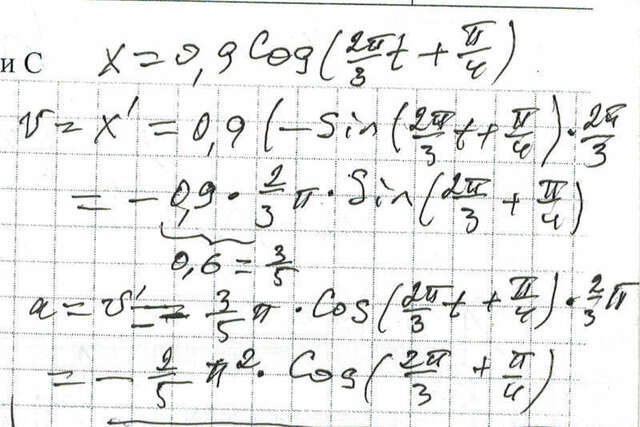 и С x = 0,9 Cos(2π/3 t + π/4)
v = x' = 0,9 (- Sin(2π/3 t + π/4) · 2π/3
= - 0,9 · 2/3 π · Sin(2π/3 + π/4)
0,6 = 3/5
a = v' = - 3/5 π · Cos(2π/3 t + π/4) · 2/3 π
= - 2/5 π² · Cos(2π/3 + π/4)